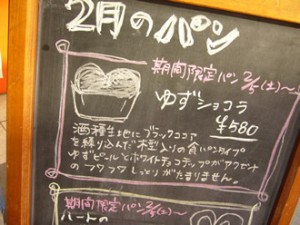 2月のパン
期間限定パン 2/5(土)〜
ゆずショコラ
¥580
酒種生地にブラックココア
を練り込んだ木型入りの食パンタイプ
ゆずピールとホワイトチョコチップがアクセント
のフワフワしっとりがたまりません。
期間限定パン 2/5(土)〜
ハートの